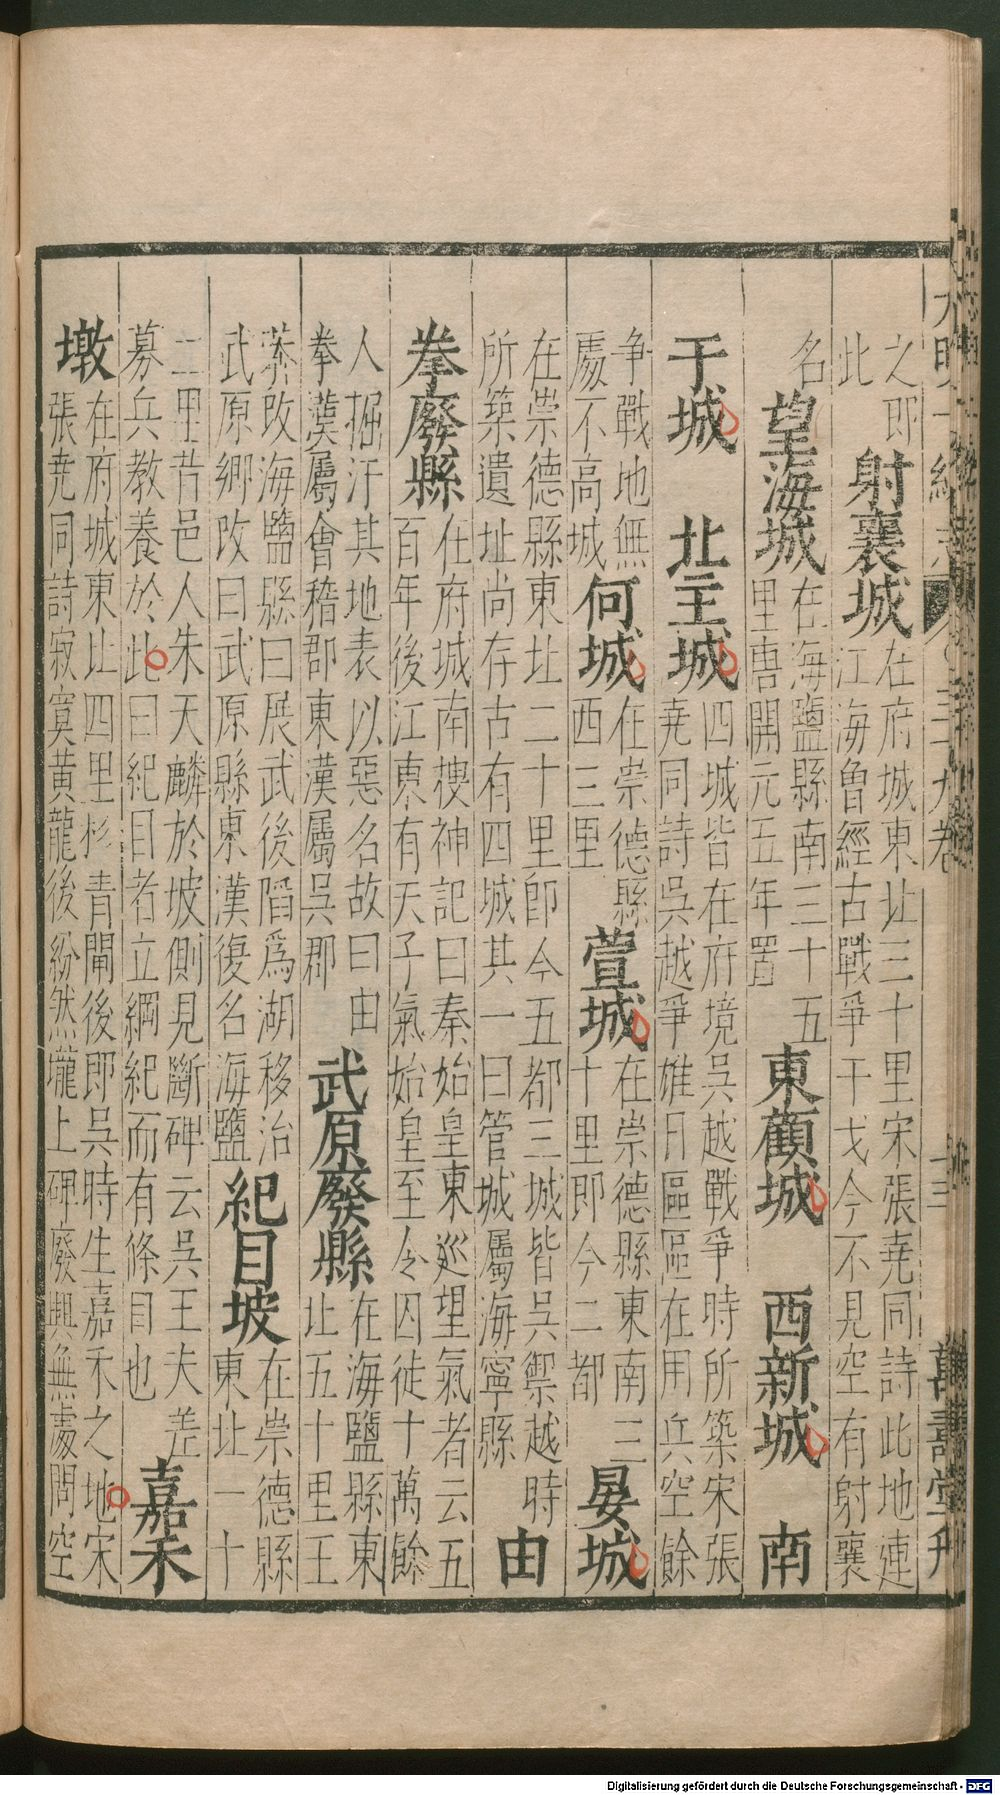 之即
此
射襄城
在府城東北三十里宋張堯同詩此地連
江海魯經古戰爭干戈今不見空有射襄
名
望海城
在海鹽縣南三十五
里唐開元五年置
東顧城
西新城
南
于城
北主城
四城皆在府境吳越戰爭時所築宋張
堯同詩吳越爭雄日區區在用兵空餘
争戰地無
處不高城
何城
在崇德縣
西三里
萱城
在崇德縣東南三
十里即今二都
晏城
在崇德縣東北二十里即今五都三城皆吳禦越時
所築遺址尚存古有四城其一曰管城屬海寧縣
由
拳廢縣
在府城南搜神記曰秦始皇東巡望氣者云五
百年後江東有天子氣始皇至令囚徒十萬餘
人掘汙其地表以惡名故曰由
拳漢屬會稽郡東漢屬吳郡
武原廢縣
在海鹽縣東
北五十里王
莽改海鹽縣曰展武後陷爲湖移治
武原鄉改曰武原縣東漢復名海鹽
紀目坡
在崇德縣
東北一十
二里昔邑人朱天麟於坡側見斷碑云吳王夫差
募兵教養於此曰紀目者立綱紀而有條目也
嘉禾
墩
在府城東北四里杉青閘後即吳時生嘉禾之地宋
張堯同詩寂寞黃龍後紛然壠上碑廢興無處問空
萬壽堂刊
Digitalisierung gefördert durch die Deutsche Forschungsgemeinschaft - DFG